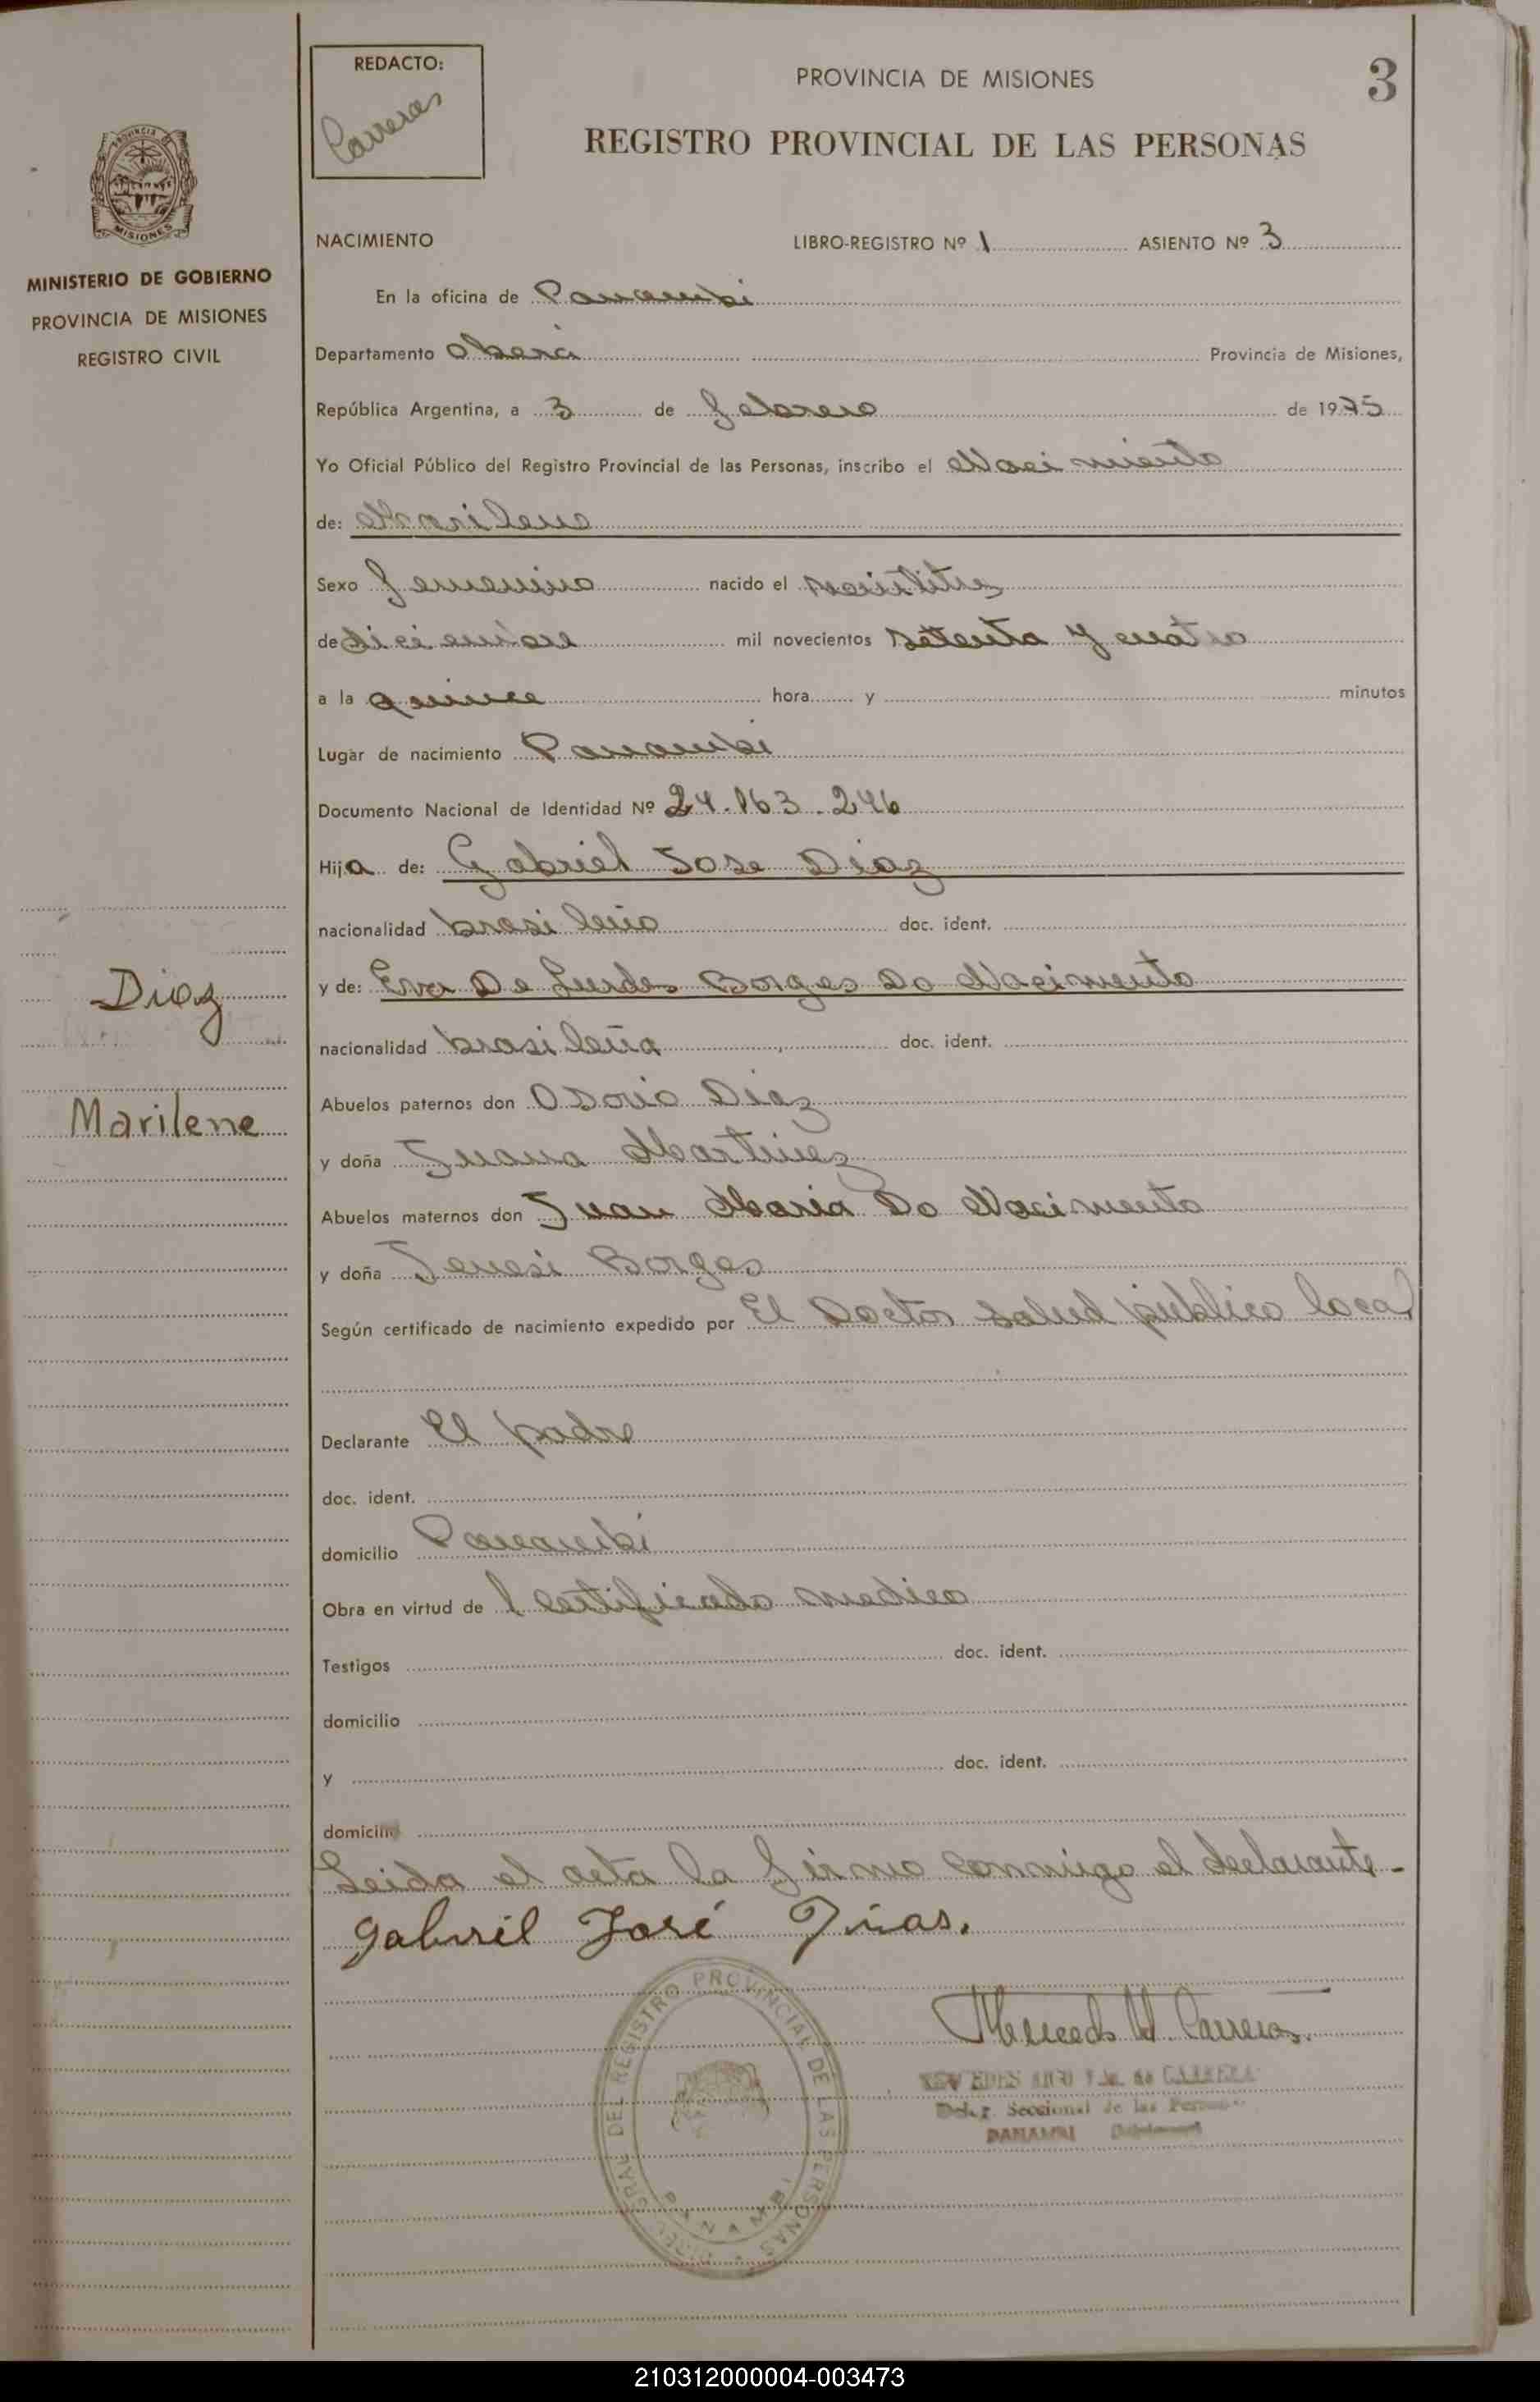 REDACTO:
Carreras
PROVINCIA DE MISIONES
3
REGISTRO PROVINCIAL DE LAS PERSONAS
MISIONES
MINISTERIO DE GOBIERNO
PROVINCIA DE MISIONES
REGISTRO CIVIL
NACIMIENTO LIBRO-REGISTRO Nº 1 ASIENTO Nº 3
En la oficina de Panambi
Departamento Oberá Provincia de Misiones,
República Argentina, a 3 de febrero de 1975
Yo Oficial Público del Registro Provincial de las Personas, inscribo el Nacimiento
de: Marilene
Sexo femenino nacido el veintitres
de diciembre mil novecientos setenta y cuatro
a la quince hora y minutos
Lugar de nacimiento Panambi
Documento Nacional de Identidad Nº 24.163.246
Hija de: Gabriel Jose Diaz
nacionalidad brasileño doc. ident.
y de: Eva De Lurdes Borges Do Nacimento
nacionalidad brasileña doc. ident.
Diaz
Marilene
Abuelos paternos don Osorio Diaz
y doña Juana Martinez
Abuelos maternos don Juan Maria Do Nacimento
y doña Jenesi Borges
Según certificado de nacimiento expedido por El Doctor salud publica local
Declarante El padre
doc. ident.
domicilio Panambi
Obra en virtud de 1 certificado medico
Testigos doc. ident.
domicilio
y doc. ident.
domicilio
Leida el acta la firma conmigo el declarante-
Gabriel José Dias.
Mercedes N. Carreras.
Deleg. Seccional de las Personas
PANAMBI
REGISTRO PROVINCIAL DE LAS PERSONAS
PANAMBI
210312000004-003473